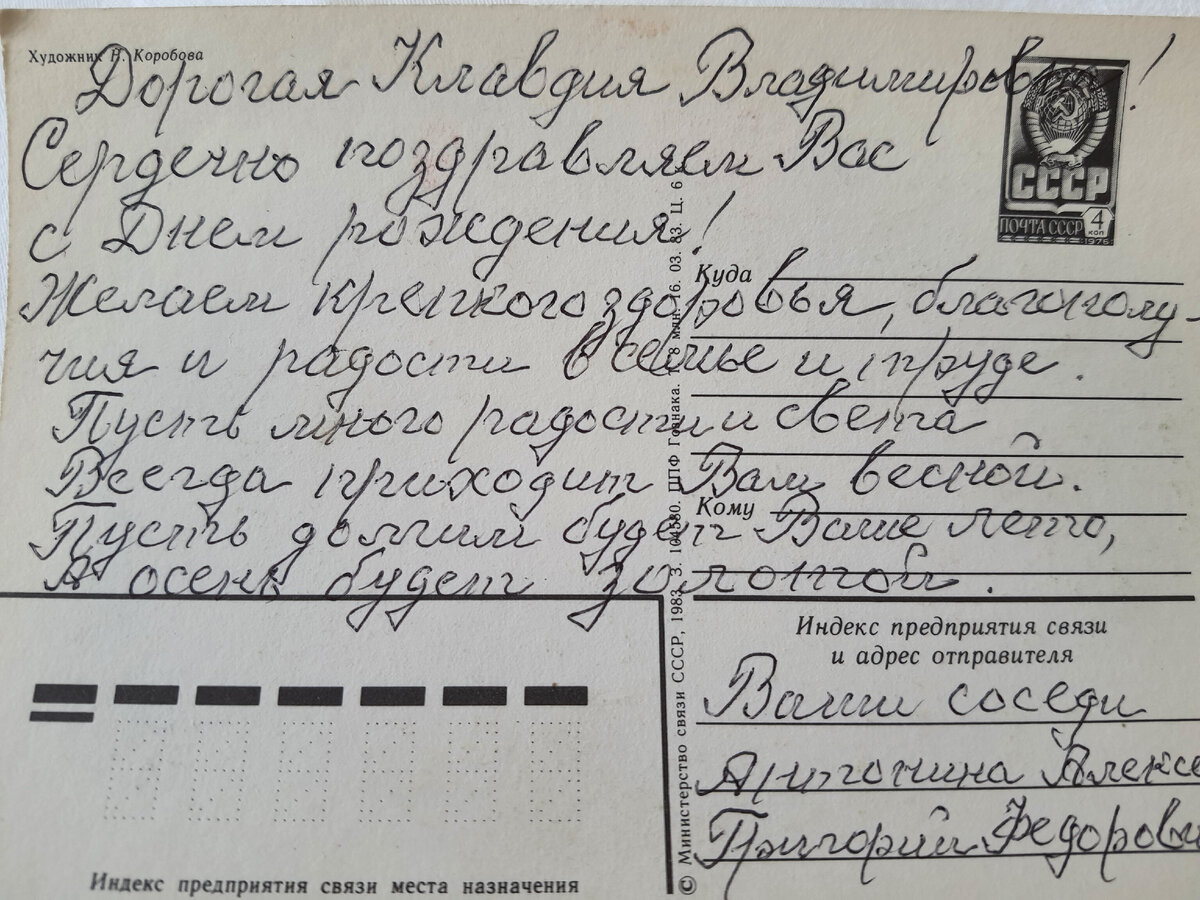 Художник Н. Коробова
Дорогая Клавдия Владимировна!
Сердечно поздравляем Вас
с Днем рождения!
Желаем крепкого здоровья, благополу-
чия и радости в семье и труде.
Пусть много радости и света
Всегда приходит Вам весной.
Пусть долгим будет Ваше лето,
А осень будет золотой.
СССР
ПОЧТА СССР 4 коп
1976
Куда
Кому
Индекс предприятия связи
и адрес отправителя
Ваши соседи
Антонина Алексе
Григорий Федорови
© Министерство связи СССР, 1983. З. 104530. ППФ Гознака. млн. 16. 03. 83. Ц. 6
Индекс предприятия связи места назначения